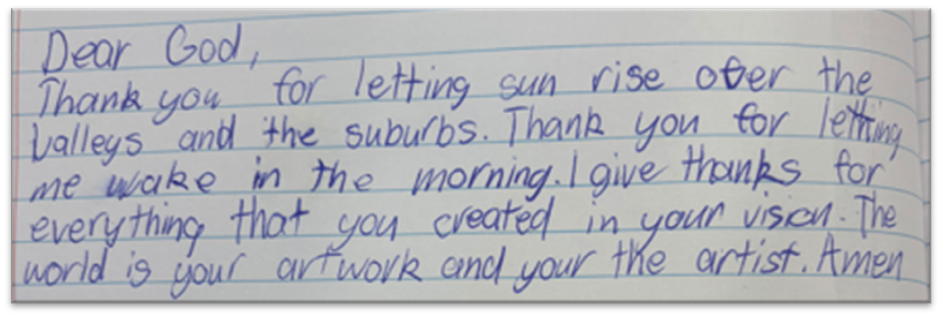 Dear God,
Thank you for letting sun rise over the
valleys and the suburbs. Thank you for letting
me wake in the morning. I give thanks for
everything that you created in your vision. The
world is your artwork and your the artist. Amen